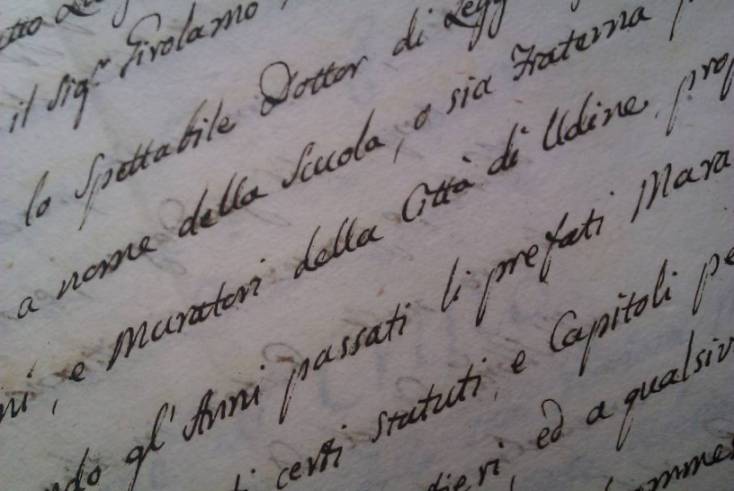 il Sig.r Girolamo
lo Spettabile Dottor di Legg
a nome della Scuola, o sia Fraterna
ni, e Muratori della Città di Udine prop
ndo gl' Anni passati li prefati Mara
di certi statuti, e Capitoli pe
tieri ed a qualsiv
omme